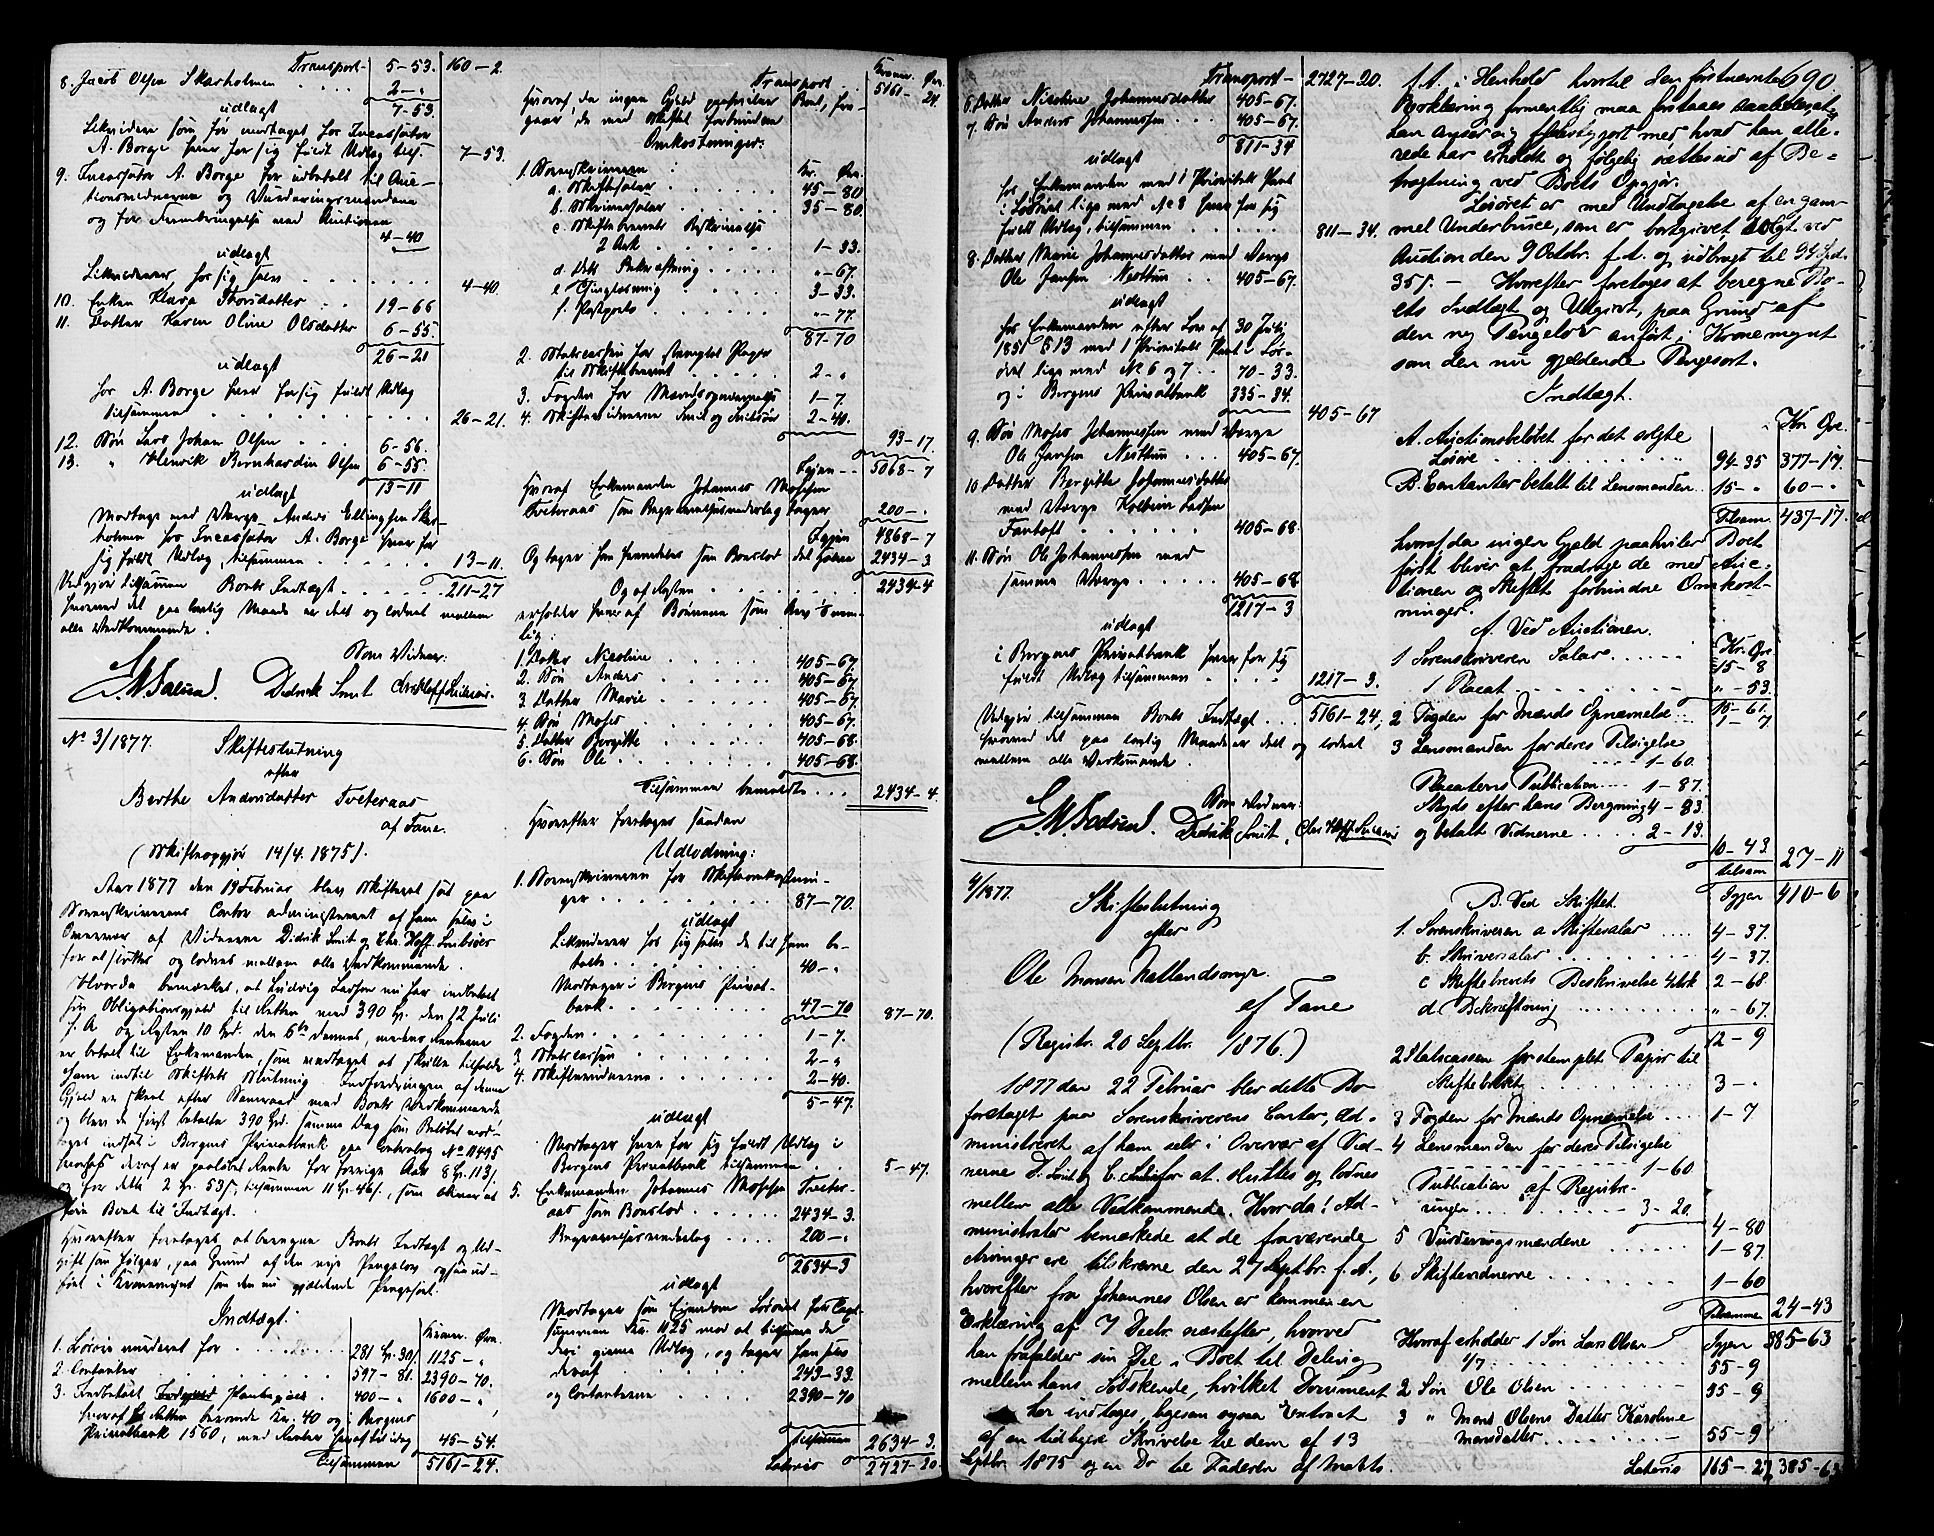 Transport 5-53. 160-2.
8. Jacob Olsen Skarholmen . . . . 2-"
7-53.
udlagt
A. Borge hver for sig fuldt Udlag tils. 7-53.
9. Incassator A. Borge for udbetalt til Auc-
tionsvidnerne og Vurderingsmændene
og for Frembringelse ved Auctionen
4-40
udlagt
Likvideres hos sig selv . . . . . 4-40.
10. Enken Klara Thorsdatter . . 19-66
11. Datter Karen Oline Olsdatter 6-55.
26-21
udlagt
hos A. Borge hver for sig fuldt Udlag
tilsammen . . . . . . 26-21.
12. Søn Lars Johan Olsen . . . 6-56.
13. " Henrik Bernhardin Olsen 6-55.
13-11
udlagt
Modtage ved Værge Anders Ellingsen Skar-
holmen hos Incassator A. Borge hver for
sig fuldt Udlæg, tilsammen . . . . . 13-11.
Udgjør tilsammen Boets Indtægt . . . . 211-27
hvorved det paa lovlig Maade er delt og loddet mellem
alle Vedkommende.
Som Vidner:
Didrik Smit
No 3/1877. Skifteslutning
efter
Berthe Andersdatter Tveteraas
af Fane.
(Skifteopgjør 14/4. 1875).
Aar 1877 den 19 Februar blev Skifteret sat paa
Sorenskriverens Contor administreret af ham selv i
Overvær af Vidnerne Didrik Smit og Chr. Hoff
for at slutte og loddes mellem alle Vedkommende.
Hvorda bemærkes, at Ludvig Lassen nu har indbetalt
sin Obligationsgjeld til Retten med 390 Spd. den 12 Juli
f. A. og Resten 10 Spd. den 6te dennes, medens Renterne
er betalt til Enkemanden, som modtaget at skulle tilholde
ham indtil Skiftets Slutning. Indfordringen af denne
Gjeld er skeet efter Samraad med Boets Vedkommende
og blev de først betalte 390 Spd. samme Dag som Beløbet mod-
taget indsat i Bergens Privatbank paa Contrabog No 11495
hvorhos deraf er paaløbet Rente for forrige Aar 8 Sp. 113 s
og for dette 2 Sp. 53 s, tilsammen 11 Sp. 46 s, som ansees at
Boet til Indtægt.
Hvorefter foretoges at beregne Boets Indtægt og Ud-
gift som følger, paa Grund af den nye Pengelov ogsaa ud-
ført i Kronemynt som den nu gjeldende Pengesort.
Indtægt:
Kroner. Øre.
1. Løsøre vurderet for . . 281 Sp. 30 s 1125-"
2. Contanter . . . . . 597-81. 2390-70.
3. Indbetalt Pantegjæld . 400-" 1600-"
hvoraf hos Retten beroende Kr. 40 og i Bergens
Privatbank 1560, med Renter heraf til idag 45-54.
Tilsammen 5161-24.
Kroner. Øre.
Transport . . 5161-24.
Hvoraf, da ingen Gjeld paahviler Boet, fra-
gaar de med Skiftet forbundne
Omkostninger:
1. Sorenskriveren : Kr. Øre.
a. Skiftesalær . . . . . . 45-80
b. Skriversalær . . . . . . 35-80.
c. Skiftebrevets Beskrivelse
2 Ark . . . . . 1-33.
d. Dets Bekræftning . . . . . "-67.
e. Tinglæsning . . . . . 3-33.
f. Postporto . . . . . . "-77.
87-70
2. Statscassen for stemplet Papir
til Skiftebrevet . . . . . 2-"
3. Fogden for Mændsopnævnelse 1-7
4. Skiftevidnerne Smit og 2-40.
93-17
Igjen- 5068-7
Hvoraf Enkemanden Johannes Mosesen
Tveteraas som Begravelsesvederlag tager 200-"
Igjen 4868-7
Og tager han fremdeles som Boeslod det Halve 2434-3
Og af Resten . . . . . . 2434-4
erholder hver af Børnene som Arv 1/6 nem-
lig:
1. Datter Nicoline . . . . . . 405-67.
2. Søn Anders . . . . . . 405-67
3. Datter Marie . . . . . . 405-67.
4. Søn Moses . . . . . . 405-67.
5. Datter Bergitte . . . . . . 405-68.
6. Søn Ole . . . . . . 405-68.
Tilsammen bemeldte . . . 2434-4.
Hvorefter foretoges saadan
Udlodning:
1. Sorenskriveren for Skifteomkostnin-
ger . . . . . . . . 87-70.
udlagt
Likviderer hos sig selv de til ham be-
talte . . . . . . . 40-"
Modtager i Bergens Privat-
bank . . . . . . . 47-70
87-70.
2. Fogden . . . . . . . 1-7.
3. Statscassen . . . . . . 2-"
4. Skiftevidnerne . . . . . 2-40.
5-47.
udlagt
Modtager hver for sig fuldt Udlæg i
Bergens Privatbank tilsammen . . 5-47.
5. Enkemanden Johannes Mosesen Tveter-
aas som Boeslod . . . . . . 2434-3.
Begravelsesvederlag . . . . 200-"
2634-3
udlagt
Modtager som Eiendom Løsøret hvis Taxt-
summen Kr. 1125 mod at tilsvare de
deri givne Udlæg, og tager han saa
deraf . . . . . . 243-33.
og Contanterne . . . . . 2390-70
Tilsammen 2634-3.
Lateris 2727-20.
Transport- 2727-20.
6. Datter Nicoline Johannesdatter 405-67.
7. Søn Anders Johannessen . . . 405-67.
811-34
udlagt
hos Enkemanden med 1 Prioritets Pant
i Løsøret lige med No 8 hver for sig
fuldt Udlæg, tilsammen . . . . . 811-34.
8. Datter Marie Johannesdatter med Værge
Ole Jansen Nesttun . . 405-67.
udlagt
hos Enkemanden efter Lov af 30 Juli
1851 § 13 med 1 Prioritets Pant i Løs-
øret lige med No 6 og 7 . . 70-33.
og i Bergens Privatbank 335-34.
405-67
9. Søn Moses Johannessen med Værge
Ole Jansen Nesttun . . . 405-67.
10 Datter Bergitte Johannesdatter
med Værge Kolbein Lassen
Fantoft . . . . . 405-68.
11. Søn Ole Johannessen med
samme Værge . . . . . 405-68.
1217-3
udlagt
i Bergens Privatbank hver for sig
fuldt Udlæg tilsammen . . . . . 1217-3.
Udgjør tilsammen Boets Indtægt . . . 5161-24.
hvorved det paa lovlig Maade er delt og loddet
mellem alle Vedkommende.
Som Vidner:
Didrik Smit.
4/1877. Skifteslutning
efter
Ole Monsen Natlandsmyr.
af Fane
(Registr. 20 Septbr. 1876.)
1877 den 22 Februar blev dette Bo
foretaget paa Sorenskriverens Contor, ad-
ministreret af ham selv i Overvær af Vid-
nerne D. Smit og C. for at sluttes og loddes
mellem alle Vedkommende. Hvorda: Ad-
ministrator bemærkede at de fraværende
Arvinger ere tilskrevne den 27 Septbr. f. A.,
hvorefter fra Johannes Olsen er kommen en
Erklæring af 7 Decbr. næstefter, hvorved
han frafalder sin Del i Boet til Deling
mellem hans Sødskende, hvilket Document
her indtages, ligesom ogsaa Extract
af en tidligere Skrivelse til dem af 13
Septbr. 1875 og en Do til Faderen af Marts
690.
f. A. i Henhold hvortil den førstnævnte
Erklæring formentlig maa forstaaes saaledes, at
han anser sig fyldestgjort med hvad han alle-
rede har erholdt og følgelig sættes ud af Be-
tragtning ved Boets Opgjør.
Løsøret er med Undtagelse af en gam-
mel Underbuxe, som er bortgivet solgt ved
Auction den 9 Octbr. f. A. og udbragt til 94 Spd.
35 s. - Hvorefter foretoges at beregne Bo-
ets Indtægt og Udgivt, paa Grund af
den ny Pengelov anført i Kronemynt
som den nu gjældende Pengesort.
Indtægt.
Kr. Øre.
A. Auctionsbeløbet for det solgte
Løsøre . . . . . . . . . 94-35 377-17.
B. Contanter betalt til Lensmanden . . 15-" 60-"
Tilsam. 437-17.
hvoraf, da ingen Gjeld paahviler Boet
først bliver at fradrage de med Auc-
tionen og Skiftet forbundne Omkost-
ninger.
A. Ved Auctionen.
Kr. Øre
1 Sorenskriveren Salær . . . . . 15-8
1 Placat . . . . . . . "-53.
15-61.
2 Fogden for Mænds Opnævnelse . . 1-7
3 Lensmanden for deres Tilsigelse
. . . . 1-60.
Placatens Publication . . . 1-87.
Skyds efter hans Beregning 4-83
og betalt Vidnerne . . . . . 2-13.
10-43.
tilsam 27-11
Igjen 410-6
B. Ved Skiftet.
1. Sorenskriveren a Skiftesalær . . . . 4-37.
b. Skriversalær . . . . . . . . 4-37.
c Skiftebrevets Beskrivelse 4 Ark 2-68.
d. Bekræftning . . . . . . . . "-67.
12-9
2 Statscassen for stemplet Papir til
Skiftebrevet . . . . . . . . 3-"
3 Fogden for Mænds Opnævnelse . . . 1-7
4 Lensmanden for deres Tilsigelse
. . . . . . . . 1-60.
Publication af Registre-
ringen . . . . . . . - 3-20.
4-80
5 Vurderingsmændene . . . . . . 1-87.
6. Skiftevidnerne . . . . . . . 1-60
Tilsamme 24-43
Hvoraf erholder 1 Søn Lars Olsen Igjen 385-63
1/7 . . . . . . . . . 55-9
2 Søn Ole Olsen . . . . . . 55-9
3 " Mons Olsens Datter Karoline
Monsdatter . . . . . . . 55-9
Lateris 165-27 385-63